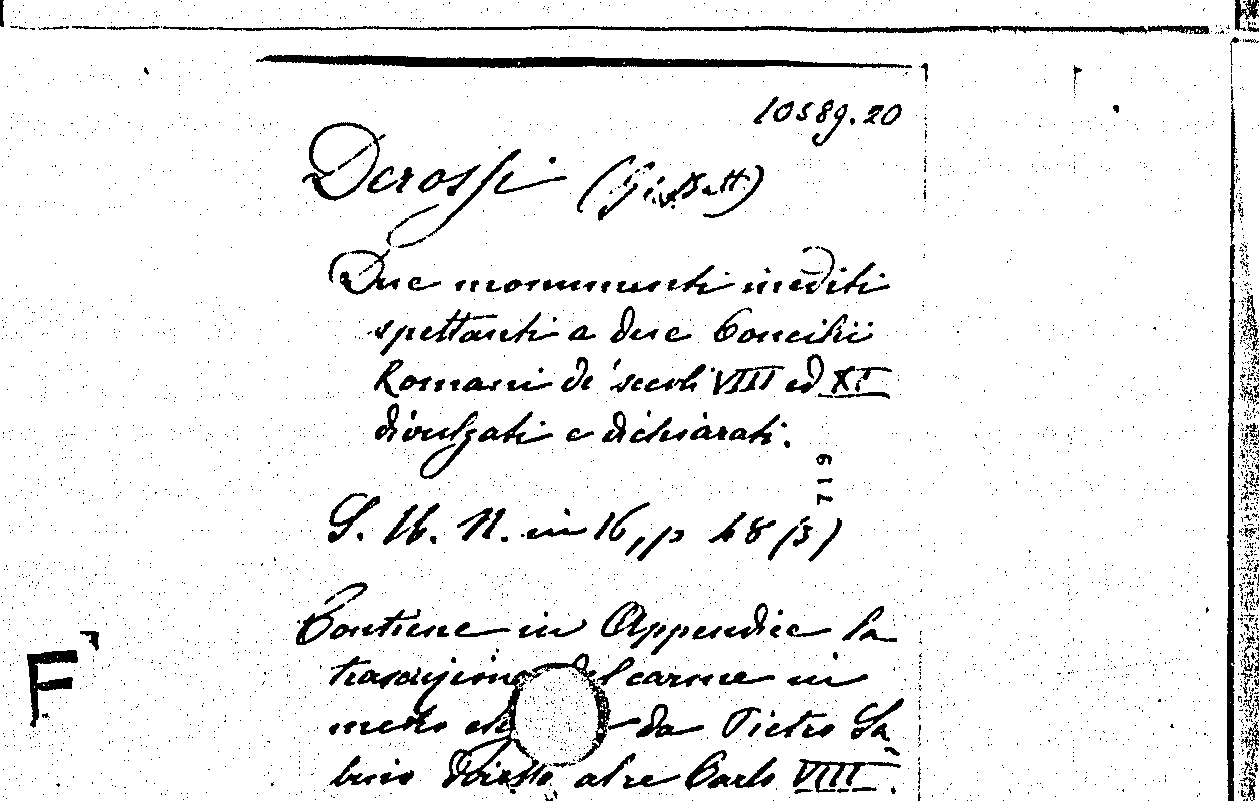 10589.20
Derossi (Gio. Batt.)
Due monumenti inediti
spettanti a due Concilii
Romani de' secoli VIII ed XI
divulgati e dichiarati.
719
S. U. N. in 16, p 48 (3)
Contiene in Appendice la
trascrizione del carme in
metro da Pietro Sa-
bino al re Carlo VIII.
F